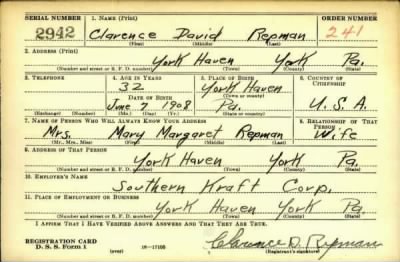 SERIAL NUMBER 1. NAME (Print) ORDER NUMBER
2942 Clarence David Repman 241
(First) (Middle) (Last)
2. ADDRESS (Print)
York Haven York Pa.
(Number and street or R. F. D. number) (Town) (County) (State)
3. TELEPHONE 4. AGE IN YEARS 5. PLACE OF BIRTH 6. COUNTRY OF CITIZENSHIP
32 York Haven
DATE OF BIRTH (Town or county)
June 7 1908 Pa. U.S.A.
(Exchange) (Number) (Mo.) (Day) (Yr.) (State or country)
7. NAME OF PERSON WHO WILL ALWAYS KNOW YOUR ADDRESS 8. RELATIONSHIP OF THAT PERSON
Mrs. Mary Margaret Repman Wife
(Mr., Mrs., Miss) (First) (Middle) (Last)
9. ADDRESS OF THAT PERSON
York Haven York Pa.
(Number and street or R. F. D. number) (Town) (County) (State)
10. EMPLOYER'S NAME
Southern Kraft Corp.
11. PLACE OF EMPLOYMENT OR BUSINESS
York Haven York Pa
(Number and street or R. F. D. number) (Town) (County) (State)
I AFFIRM THAT I HAVE VERIFIED ABOVE ANSWERS AND THAT THEY ARE TRUE.
REGISTRATION CARD
D. S. S. Form 1 (over) 16—17105 Clarence D. Repman
(Registrant's signature)